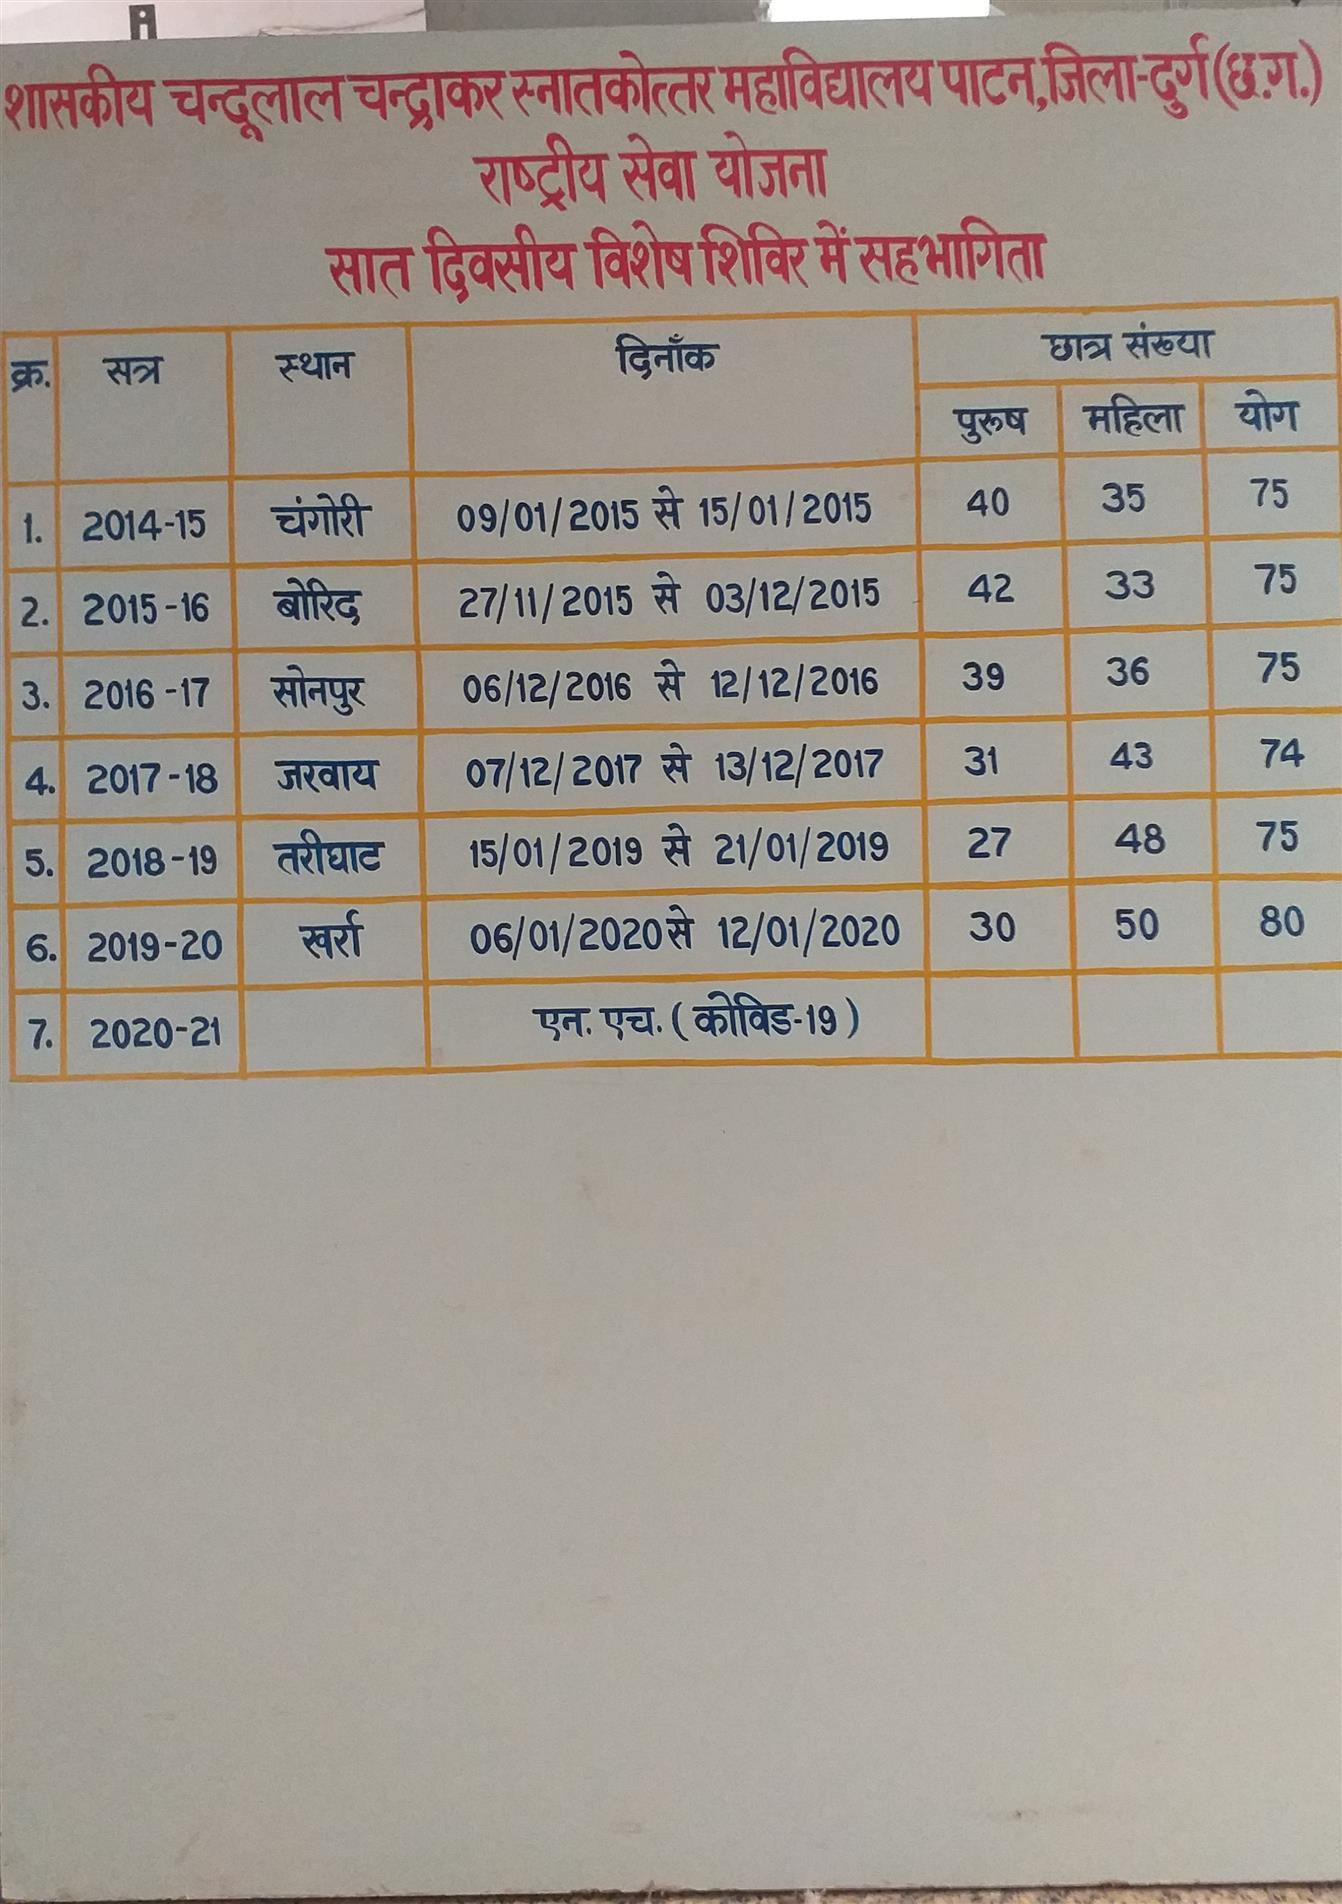 शासकीय चन्दूलाल चन्द्राकर स्नातकोत्तर महाविद्यालय पाटन,जिला-दुर्ग(छ.ग.)
राष्ट्रीय सेवा योजना
सात दिवसीय विशेष शिविर में सहभागिता
क्र. सत्र स्थान दिनाँक छात्र संख्या
पुरूष महिला योग
1. 2014-15 चंगोरी 09/01/2015 से 15/01/2015 40 35 75
2. 2015-16 बोरिद 27/11/2015 से 03/12/2015 42 33 75
3. 2016-17 सोनपुर 06/12/2016 से 12/12/2016 39 36 75
4. 2017-18 जरवाय 07/12/2017 से 13/12/2017 31 43 74
5. 2018-19 तरीघाट 15/01/2019 से 21/01/2019 27 48 75
6. 2019-20 खर्रा 06/01/2020 से 12/01/2020 30 50 80
7. 2020-21 एन. एच. (कोविड-19)